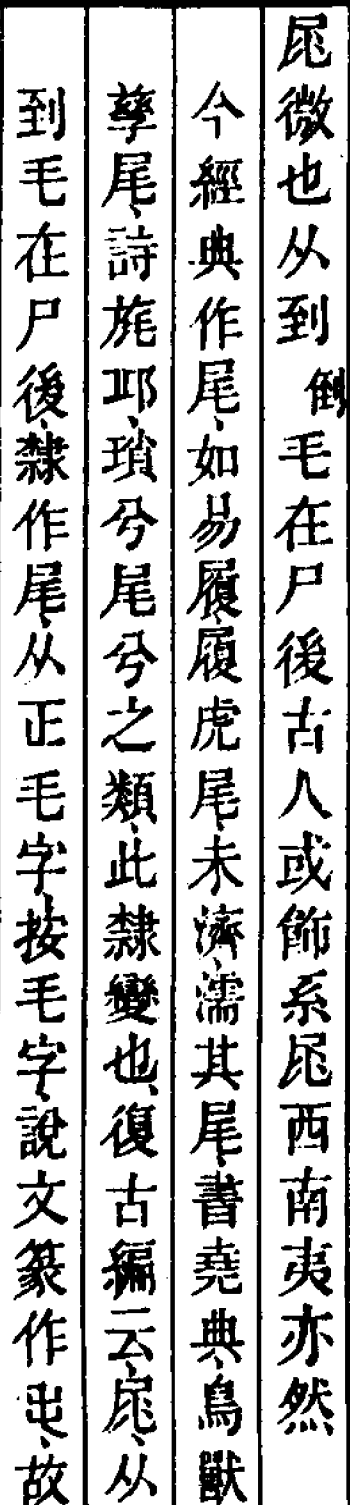 𡱕微也从到倒毛在尸後古人或飾系𡱕西南夷亦然
今經典作尾、如易履、履虎尾、未濟、濡其尾、書堯典、鳥獸
孳尾、詩旄邱、瑣兮尾兮之類、此隸變也、復古編云、𡱕、从
到毛在尸後、隸作尾、从正毛字、按毛字、說文篆作𡳿、故